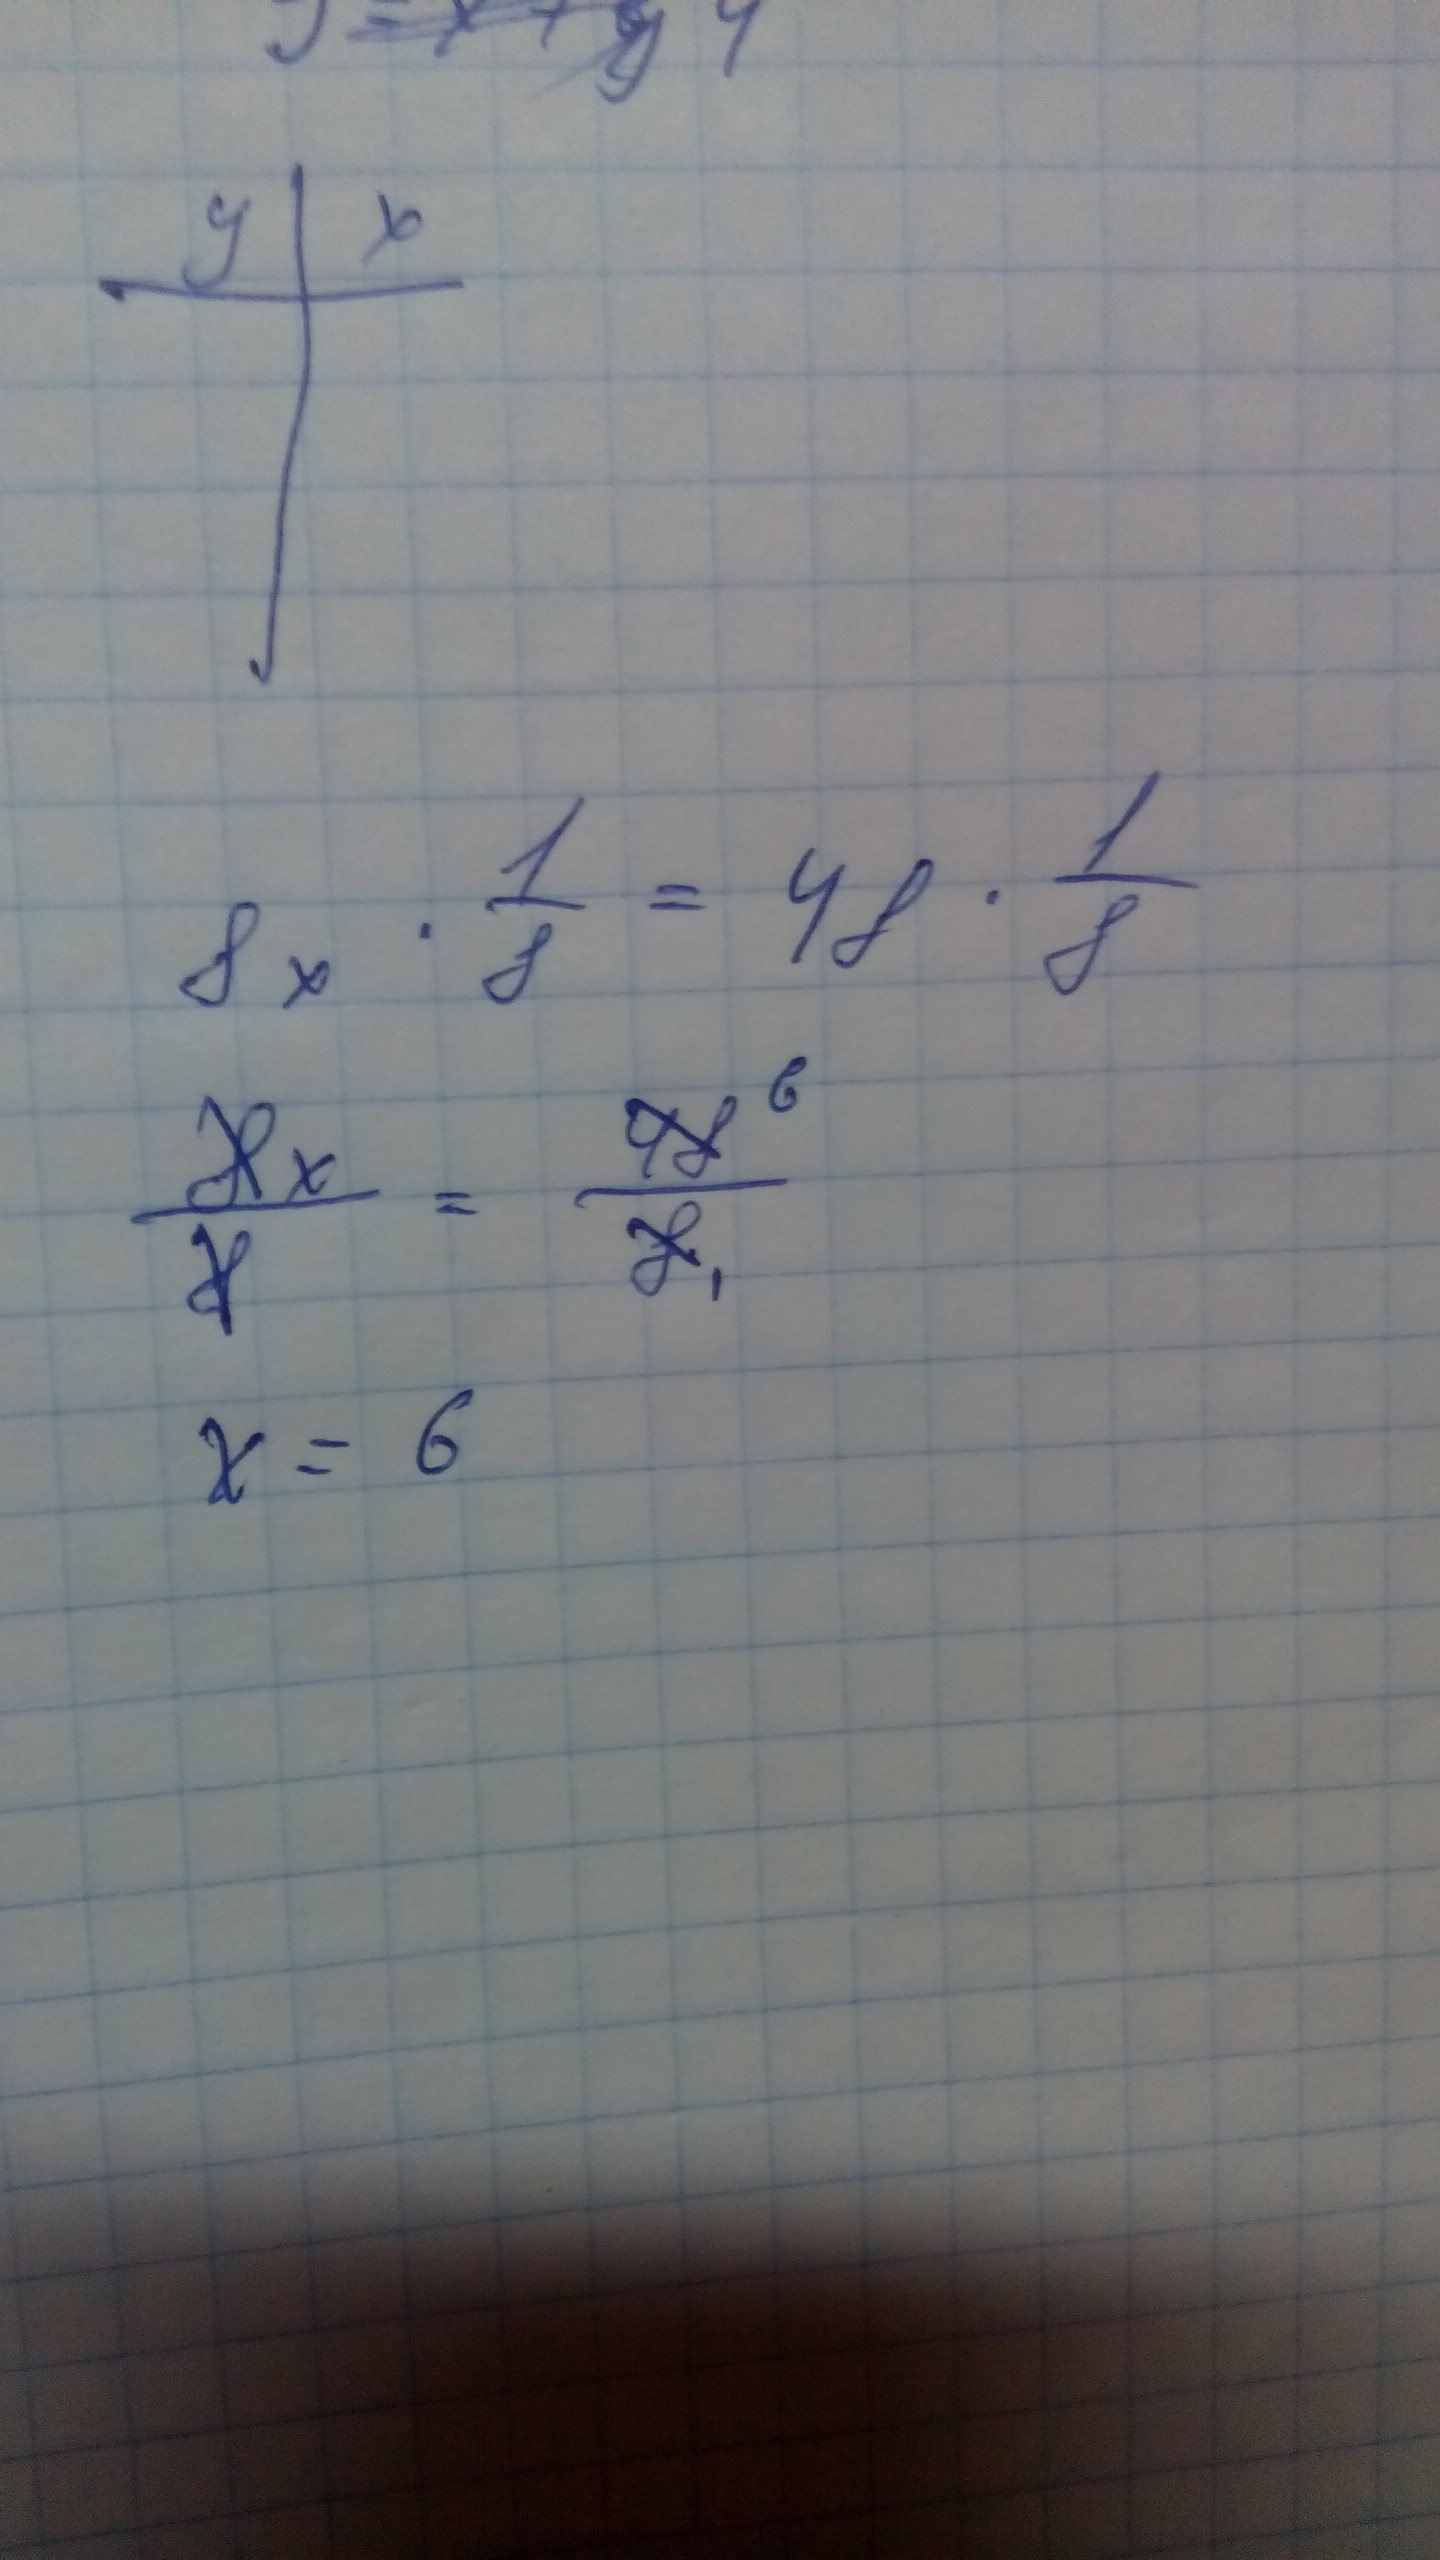 y x
8x · 1/8 = 48 · 1/8
8x/8 = 48 6/8 1
x = 6